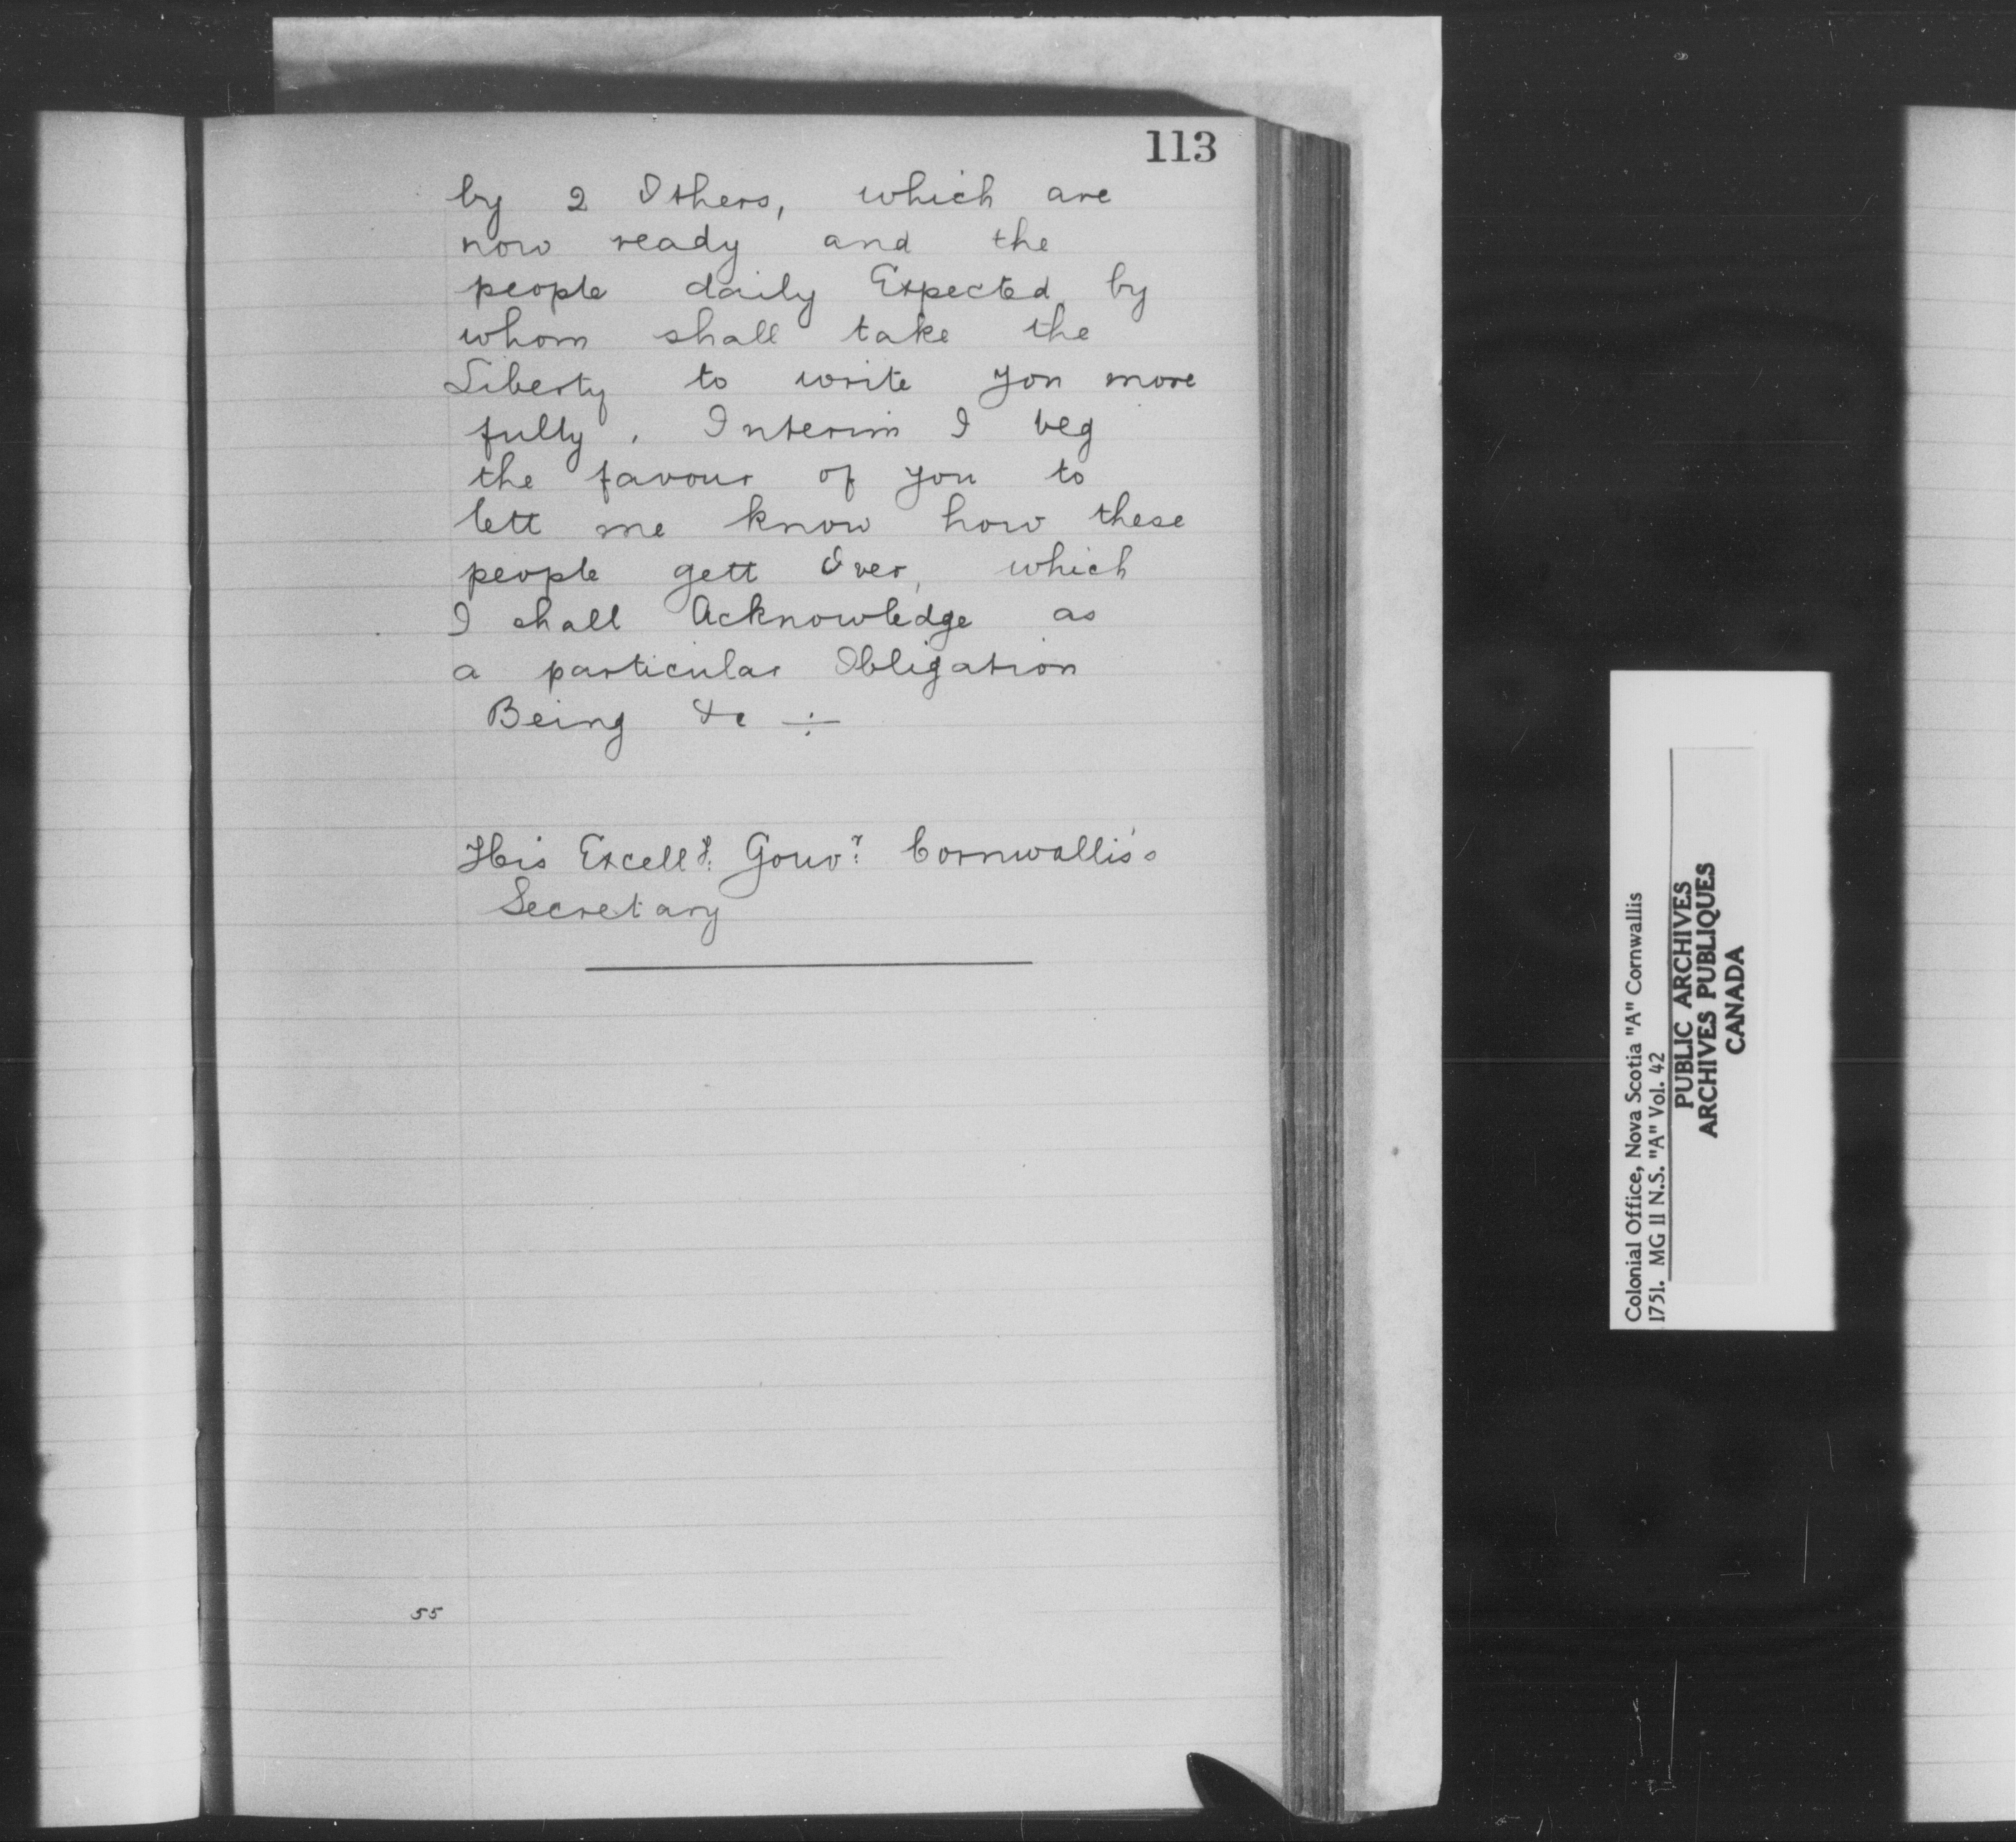 113
by 2 Others, which are
now ready and the
people daily Expected, by
whom shall take the
Liberty to write you more
fully, Interim I beg
the favour of you to
lett me know how these
people gett Over, which
I shall Acknowledge as
a particular Obligation
Being &c ÷
His Excelly. Gouvr. Cornwallis's
Secretary
55
Colonial Office, Nova Scotia "A" Cornwallis
1751. MG 11 N.S. "A" Vol. 42
PUBLIC ARCHIVES
ARCHIVES PUBLIQUES
CANADA